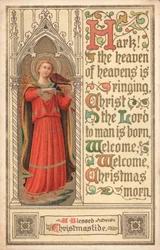 Hark!
the heaven
of heavens is
ringing,
Christ
the Lord
to man is born
Welcome,
Welcome,
Christmas
morn.
A Blessed
Christmastide.